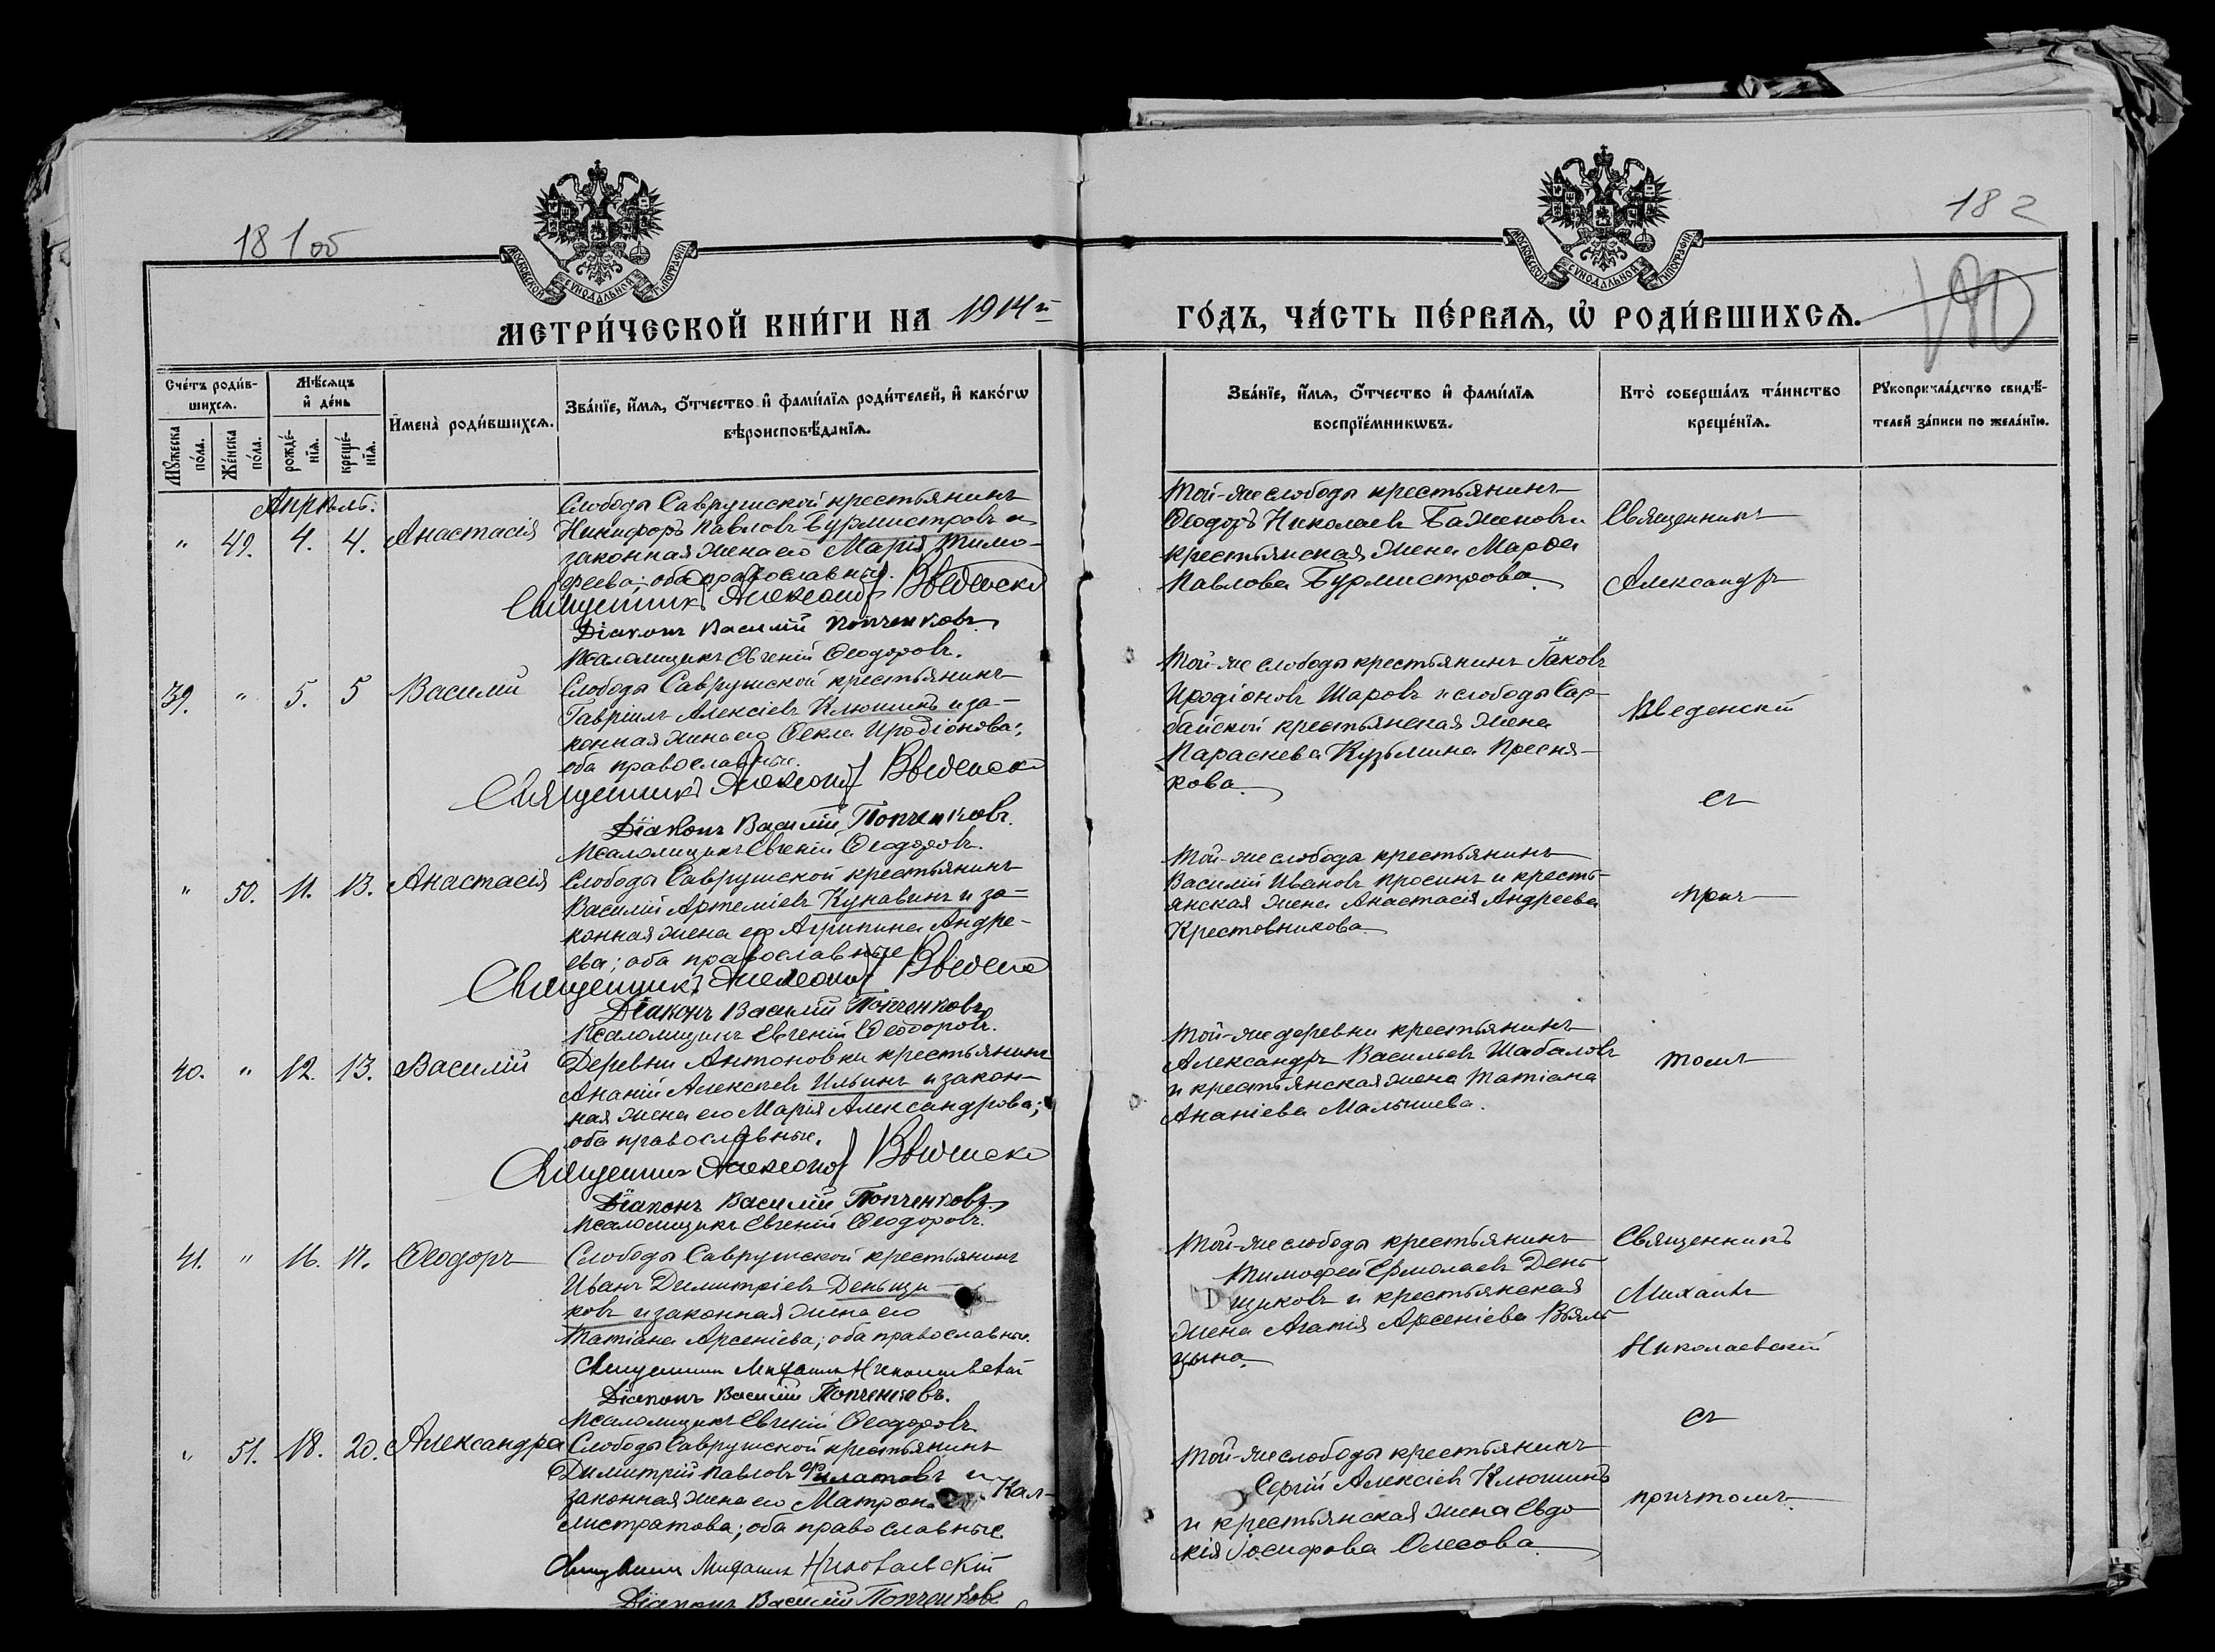 181 об
182
180
МОСКОВСКОЙ СѴНОДАЛЬНОЙ ТИПОГРАФІИ
МОСКОВСКОЙ СѴНОДАЛЬНОЙ ТИПОГРАФІИ
МЕТРИ́ЧЕСКОЙ КНИ́ГИ НА 1914й
ГО́ДЪ, ЧА́СТЬ ПЕ́РВАѦ, Ѡ҆ РОДИ́ВШИХСѦ.
Сче́тъ роди́в-
шихсѧ.
Мѣ́сѧцъ
и҆ де́нь
И҆мена̀ роди́вшихсѧ.
Зва́нїе, и҆́мѧ, ѻ҆́тчество и҆ фами́лїѧ роди́телей, и҆ како́гѡ
вѣроисповѣ́данїѧ.
Мꙋ́жеска
по́ла.
Же́нска
по́ла.
рожде́-
нїѧ.
креще́-
нїѧ.
Зва́нїе, и҆́мѧ, ѻ҆́тчество и҆ фами́лїѧ
воспрїе́мникѡвъ.
Кто̀ соверша́лъ та́инство
креще́нїѧ.
Рꙋкоприкла́дство свидѣ́-
телей за́писи по жела́нїю.
Апрѣль.
" 49. 4. 4. Анастасія
Слободы Саврушской крестьянинъ
Никифоръ Павловъ Бурмистровъ и
законная жена его Марія Тимо-
феева; оба православные.
Священникъ Александръ Введенскій
Діаконъ Василій Попченковъ
Псаломщикъ Евгеній Ѳеодоровъ.
Той-же слободы крестьянинъ
Ѳеодоръ Николаевъ Баженовъ и
крестьянская жена Марѳа
Павлова Бурмистрова
Священникъ
Александръ
39. " 5. 5 Василій
Слободы Саврушской крестьянинъ
Гавріилъ Алексіевъ Клюшинъ и за-
конная жена его Ѳекла Иродіонова;
оба православные.
Священникъ Александръ Введенскій
Діаконъ Василій Попченковъ.
Псаломщикъ Евгеній Ѳеодоровъ.
Той-же слободы крестьянинъ Іаковъ
Иродіоновъ Шаровъ и слободы Сар-
байской крестьянская жена
Параскева Кузьмина Пресня-
кова
Введенскій
съ
" 50. 11. 13. Анастасія
Слободы Саврушской крестьянинъ
Василій Артеміевъ Кунавинъ и за-
конная жена его Агрипина Андре-
ева; оба православные
Священникъ Александръ Введенскій
Діаконъ Василій Попченковъ
Псаломщикъ Евгеній Ѳеодоровъ.
Той-же слобода крестьянинъ
Василій Ивановъ Просинъ и кресть-
янская жена Анастасія Андреева
Крестовникова
прич
40. " 12. 13. Василій
Деревни Антоновки крестьянинъ
Ананій Алексѣевъ Ильинъ и закон-
ная жена его Марія Александрова;
оба православные.
Священникъ Александръ Введенскій
Діаконъ Василій Попченковъ
Псаломщикъ Евгеній Ѳеодоровъ.
Той-же деревни крестьянинъ
Александръ Васильевъ Шабаловъ
и крестьянская жена Татіана
Ананіева Малышева.
томъ
41. " 16. 17. Ѳеодоръ
Слободы Саврушской крестьянинъ
Иванъ Димитріевъ Деньщи-
ковъ и законная жена его
Татіана Арсеніева; оба православные.
Священникъ Михаилъ Николаевскій
Діаконъ Василій Попченковъ.
Псаломщикъ Евгеній Ѳеодоровъ
Той-же слободы крестьянинъ
Тимоѳей Ермолаевъ День-
щиковъ и крестьянская
жена Агапія Арсеніева Вѣяль-
цына
Священникъ
Михаилъ
Николаевскій
съ
" 51. 18. 20. Александра
Слободы Саврушской крестьянинъ
Димитрій Павловъ Филатовъ и
законная жена его Матрона Кал-
листратова; оба православные
Священникъ Михаилъ Николаевскій
Діаконъ Василій Попченковъ
Той-же слободы крестьянинъ
Сергій Алексіевъ Клюшинъ
и крестьянская жена Евдо-
кія Іосифова Олесова
причтомъ.